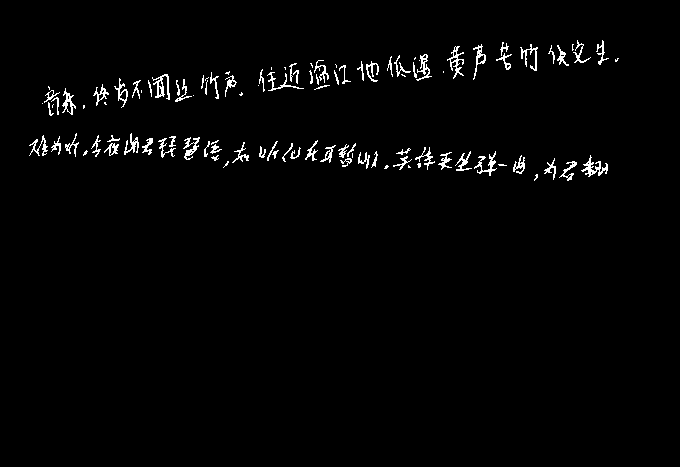 音乐，终岁不闻丝竹声，住近湓江地低湿，黄芦苦竹绕宅生，
难为听，今夜闻君琵琶语，如听仙乐耳暂明，莫辞更坐弹一曲，为君翻